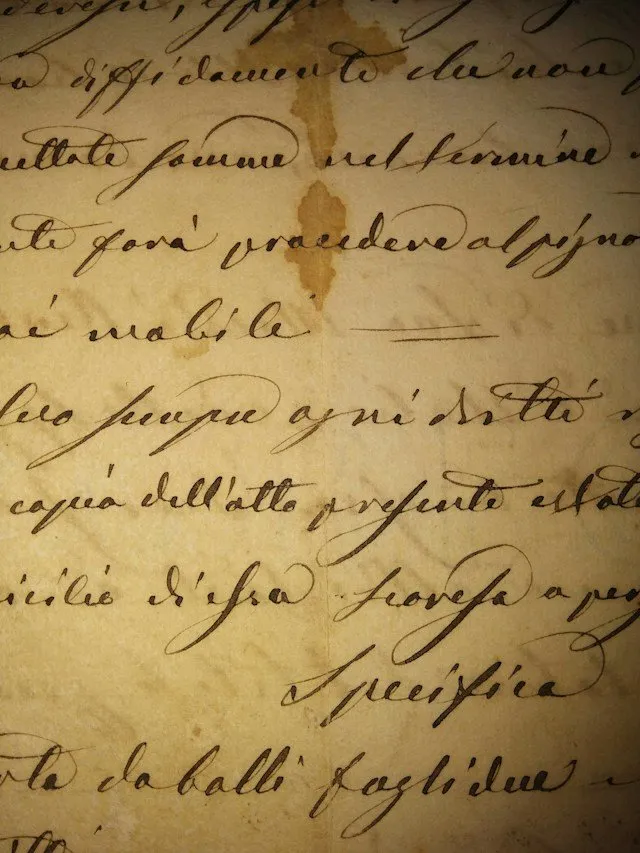 a diffidamente che non p
ettate somme nel termine
nte farà procedere al pigno
ai mobili
lvo sempre ogni dirtti
copia dell'atto presente è stata
icilio di essa Scoressa a per
Specifica
rta da bolli fogli due